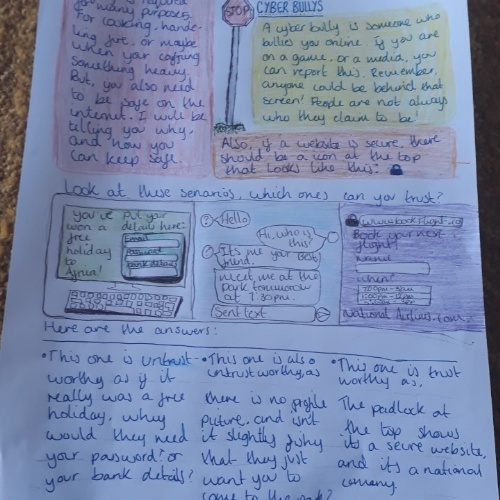 for many purposes.
For cooking, hand-
ling fire, or maybe
when your carrying
something heavy.
But, you also need
to be safe on the
internet. I will be
telling you why,
and how you
can keep safe.
STOP
CYBER BULLYS
A cyber bully is someone who
bullies you online. If you are
on a game, or a media, you
can report this. Remember,
anyone could be behind that
screen! People are not always
who they claim to be!
Also, if a website is secure, there
should be a icon at the top
that looks like this:
Look at these senarios, which ones can you trust?
You've
won a
free
holiday
to
Put your
details here:
Email
Password
bank details
Hello
Hi, who is
this?
It's me your best
friend.
meet me at the
park tomorrow
at 7:30pm.
Send text
www.bookflight.
Book your next
flight!
name
when?
National Airlines.com
Here are the answers:
•This one is untrust-
worthy as if it
really was a free
holiday, whuy
would they need
your password? or
your bank details?
•This one is also
untrustworthy, as
there is no profile
picture, and isn't
it slightly fishy
that they just
want you to
come to the park?
•This one is trust
worthy as,
The padlock at
the top shows
it's a secure website,
and it's a national
company.